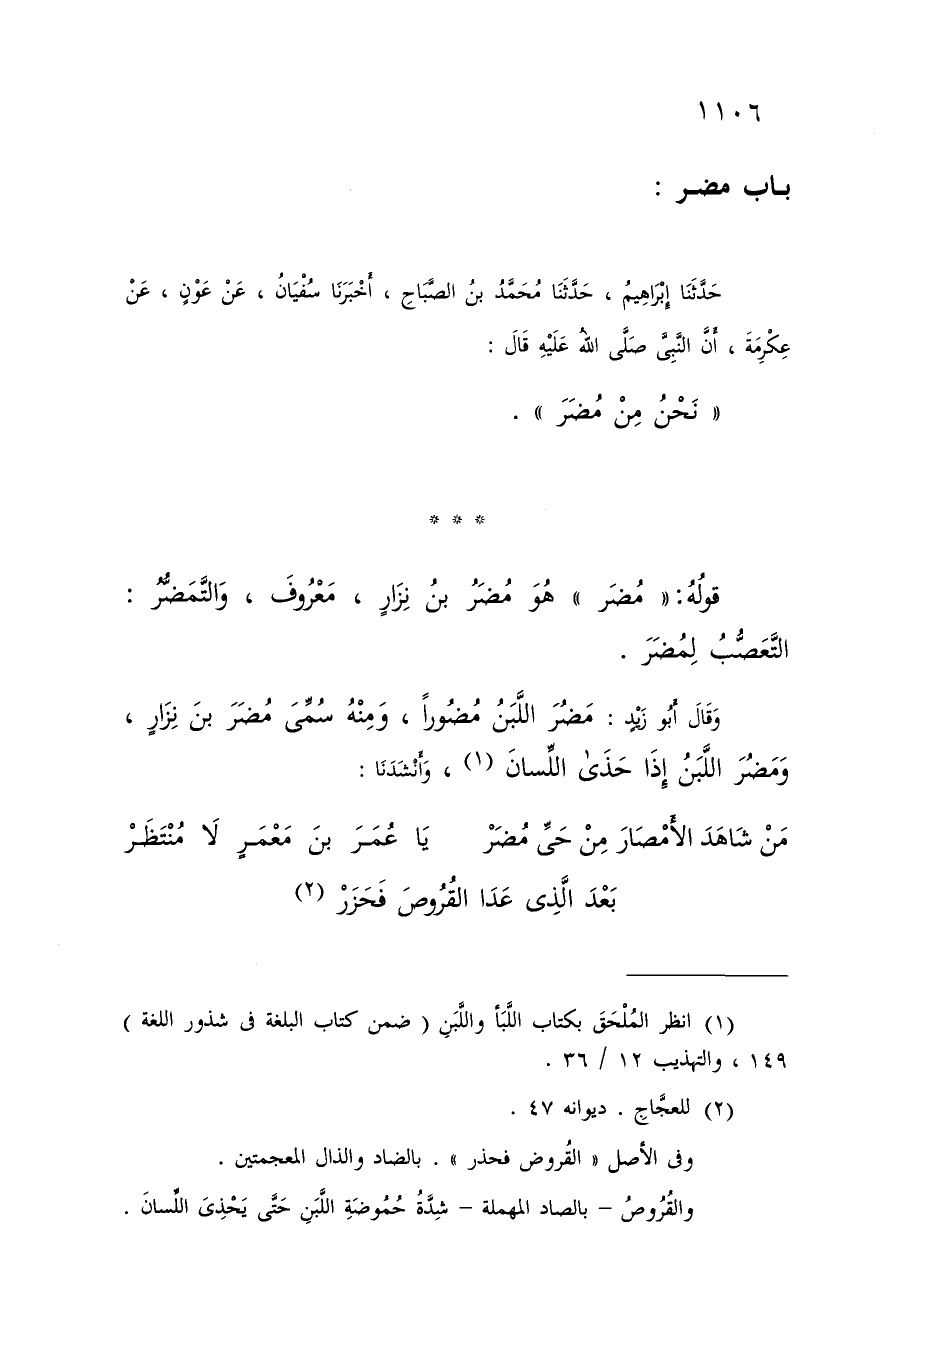 ١١٠٦
بـاب مضـر :
حَدَّثَنَا إبْرَاهِيمُ ، حَدَّثَنَا مُحَمَّدُ بنُ الصَّبَاحِ ، أَخْبَرَنَا سُفْيَانُ ، عَنْ عَوْنٍ ، عَنْ
عِكْرِمَةَ ، أَنَّ النَّبِىَّ صَلَّى اللهُ عَلَيْهِ قَالَ :
« نَحْنُ مِنْ مُضَرَ » .
* * *
قولُهُ : « مُضَر » هُوَ مُضَرُ بنُ نِزَارٍ ، مَعْرُوفَ ، وَالتَّمَضُّرُ :
التَّعَصُّبُ لِمُضَرَ .
وَقَالَ أَبُو زَيْدٍ : مَضُرَ اللَّبَنُ مُضُوراً ، وَمِنْهُ سُمِّىَ مُضَرَ بنَ نِزَارٍ ،
وَمَضُرَ اللَّبَنُ إِذَا حَذَىٰ اللِّسانَ (١) ، وَأَنْشَدَنَا :
مَنْ شَاهَدَ الأَمْصَارَ مِنْ حَىِّ مُضَرْ يَا عُمَـرَ بنَ مَعْمَـرٍ لَا مُنْتَظَـرْ
بَعْدَ الَّذِى عَدَا القُرُوصَ فَحَزَرْ (٢)
(١) انظر المُلْحَقَ بكتاب اللَّبَأ واللَّبَنِ ( ضمن كتاب البلغة فى شذور اللغة )
١٤٩ ، والتهذيب ١٢ / ٣٦ .
(٢) للعجَّاجِ . ديوانه ٤٧ .
وفى الأصل « القُروض فحذر » . بالضاد والذال المعجمتين .
والقُرُوصُ – بالصاد المهملة – شِدَّةُ حُمُوضَةِ اللَّبَنِ حَتَّى يَحْذِىَ اللِّسانَ .